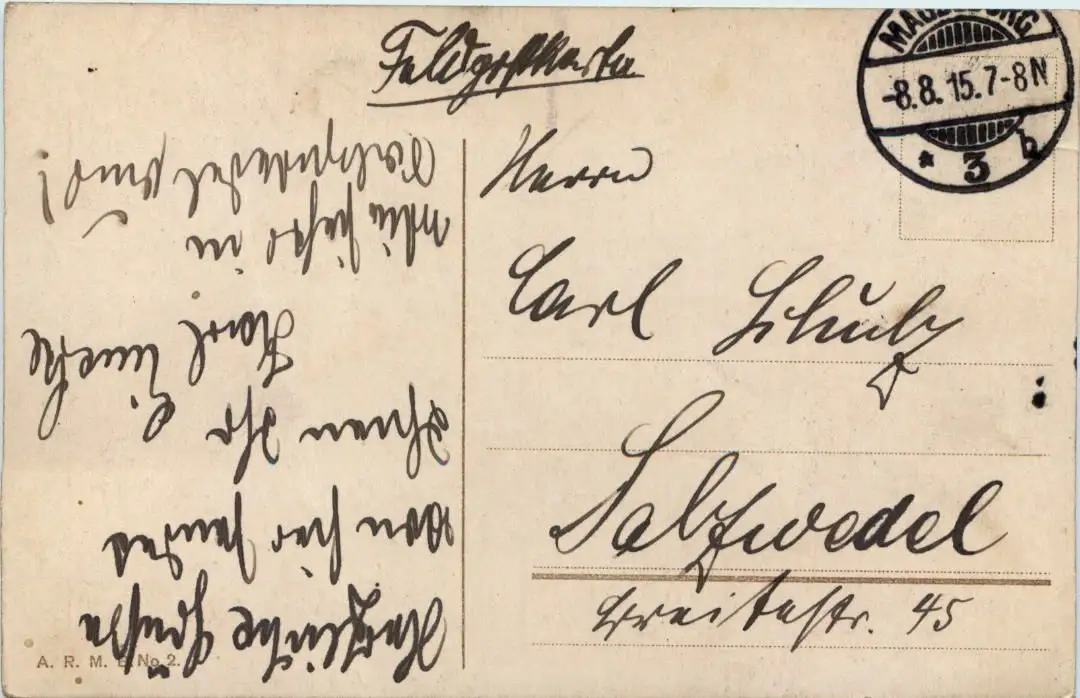 Feldpostkarte
MAGDEBURG
-8.8.15.7-8N
* 3 b
Herrn
Carl Schulz
Salzwedel
Breitestr. 45
Herzliche Grüße
von hier sendet
Ihnen Ihr
Karl
in
Salzwedel
A. R. M. B. No 2.